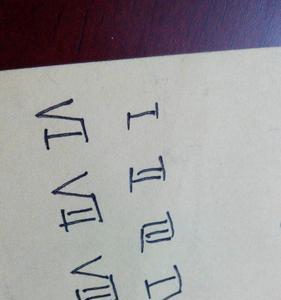 I II III IV
VI VII VIII